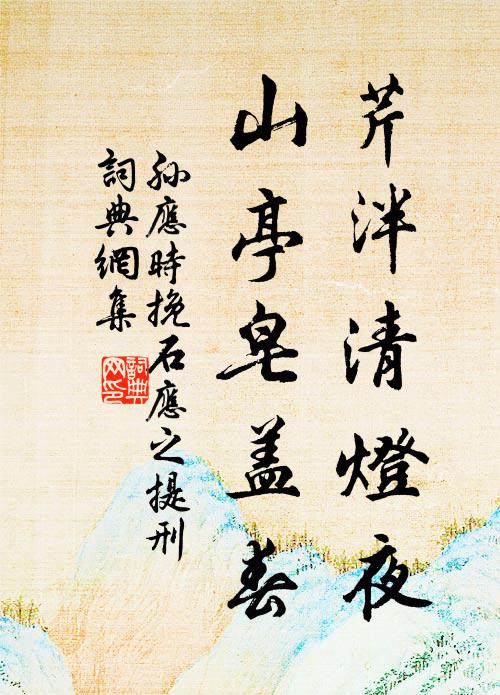 芹泮清燈夜
山亭皂盖春
孙應時挽石應之提刑
詞典網集
詞典网印